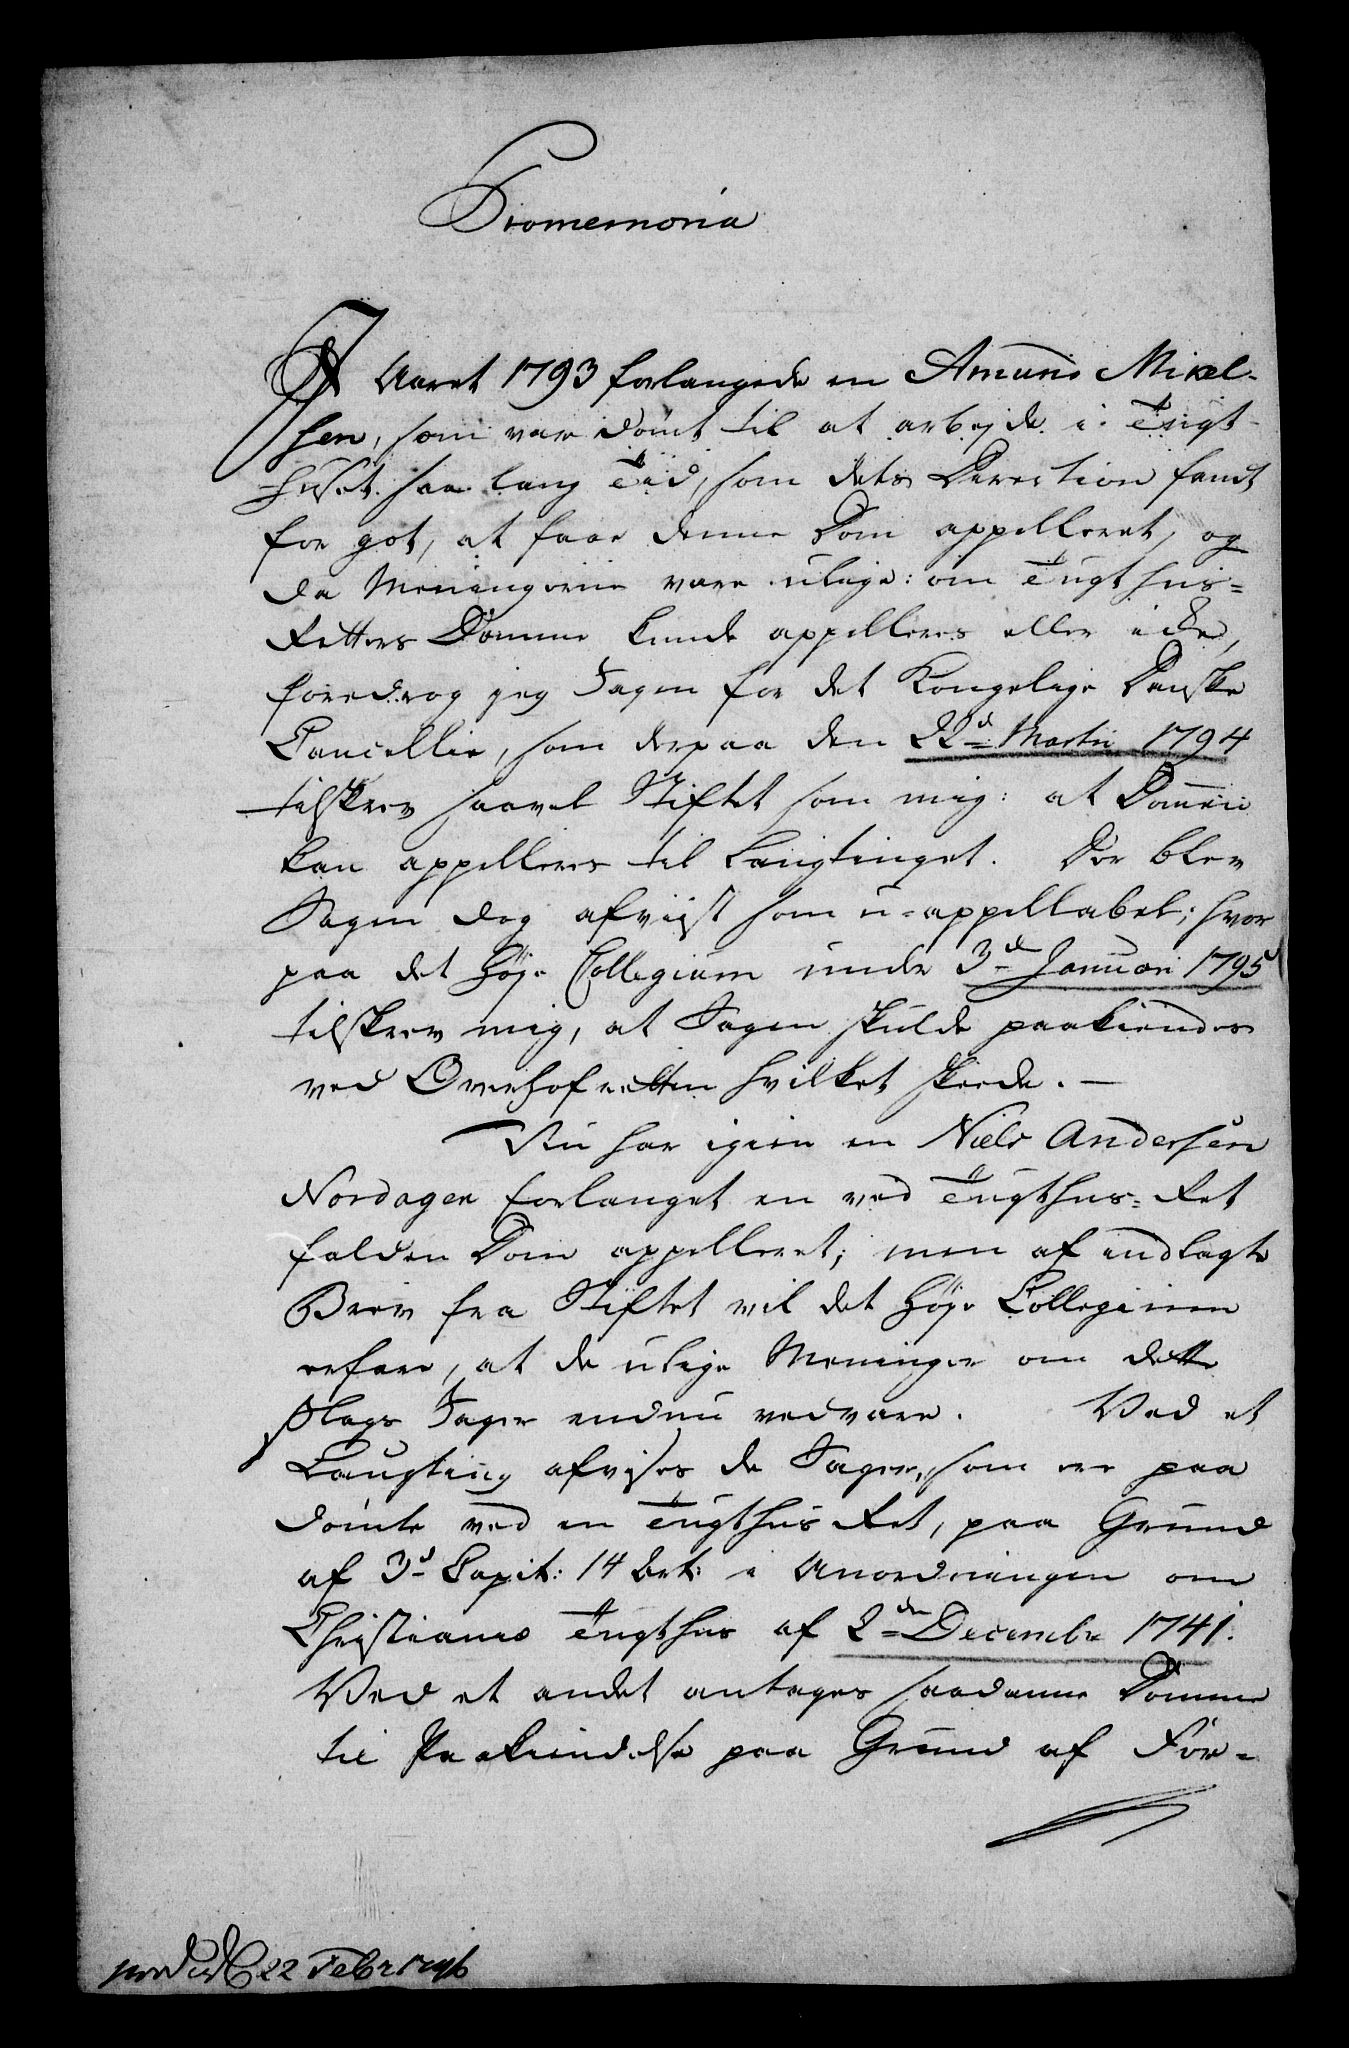 Promemoria
I Aaret 1793 forlangede en Amund Mikel-
sen, som var dømt til at arbejde i Tugt-
huset saa lang Tid, som dets Direction fandt
for got, at faae denne Dom appelleret, og
da Meningerne vare ulige: om Tugthus-
Retters Domme kunde appelleres eller icke,
foredrog jeg Sagen for det Kongelige Danske
Cancellie, som derpaa den 22d Martii 1794
tilskrev saavel Stiftet som mig: at Dommen
kan appelleres til Laugtinget. Der blev
Sagen dog afviist som u-appellabel; hvor
paa det høje Collegium under 3d Januari 1795
tilskrev mig, at Sagen skulde paakiendes
ved Overhofretten hvilket skeede. —
Nu har igien en Niels Andersen
Nordagen forlanget en ved Tugthus-Ret
falden Dom appelleret; men af indlagte
Brev fra Stiftet vil det høje Collegium
erfare, at de ulige Meninger om dette
Slags Sager endnu vedvare. Ved et
Laugting afvises de Sager, som ere paa
dømte ved en Tugthus Ret, paa Grund
af 3d Capit: 14 Art: i Anordningen om
Christiania Tugthus af 2den Decembr 1741.
Ved et andet antages saadanne Domme
til Paakiendelse paa Grund af For-
22 Febr 1796